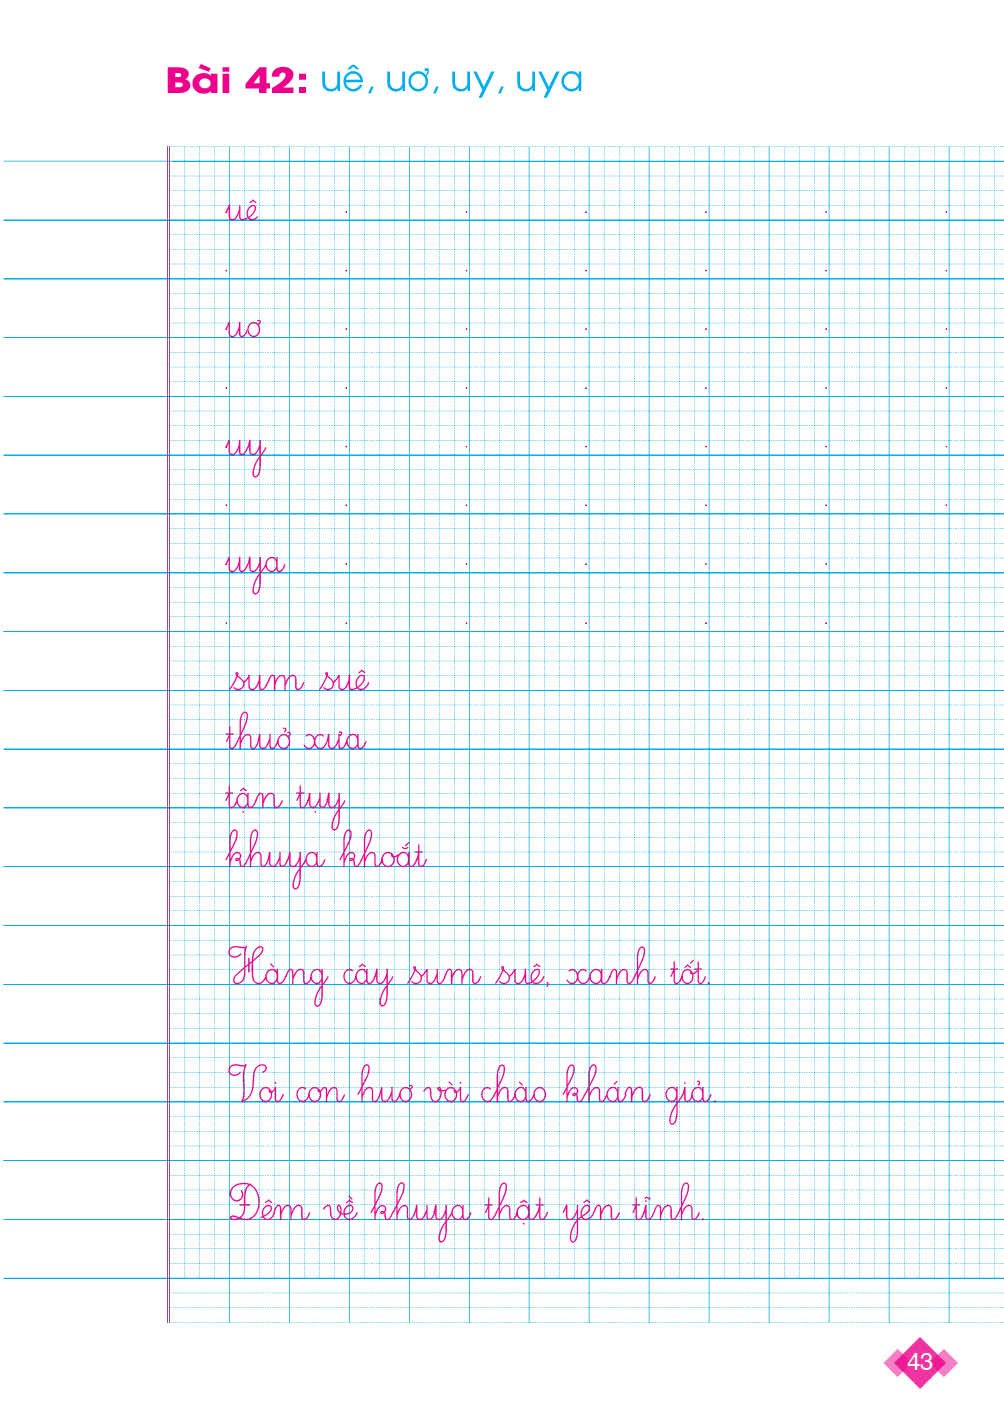 Bài 42: uê, uơ, uy, uya
uê
uơ
uy
uya
sum suê
thuở xưa
tận tụy
khuya khoắt
Hàng cây sum suê, xanh tốt.
Voi con huơ vòi chào khán giả.
Đêm về khuya thật yên tĩnh.
43